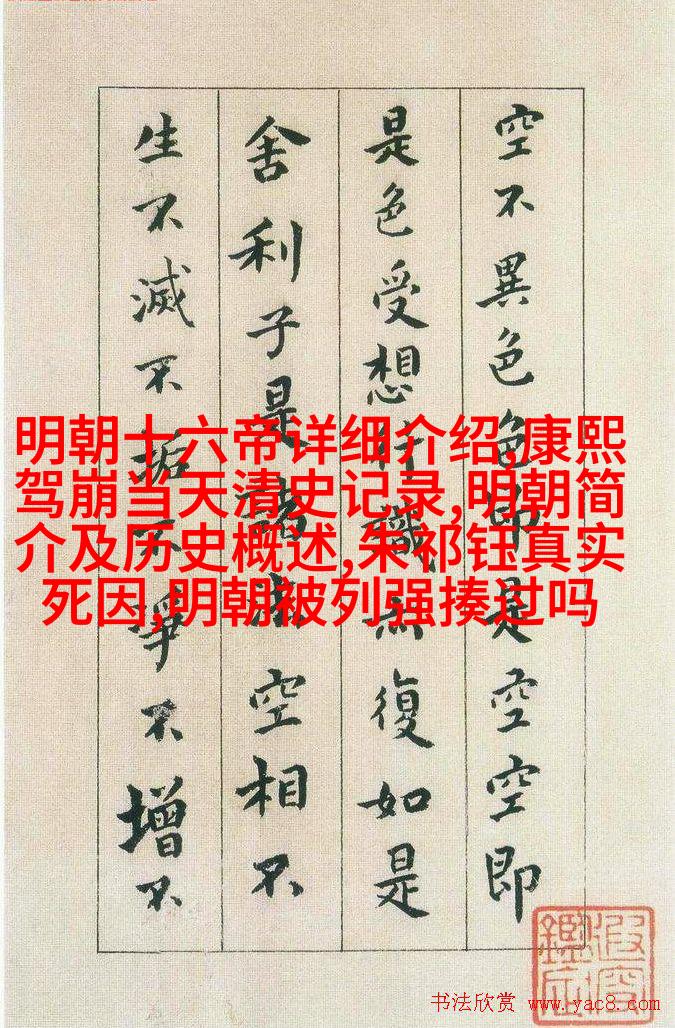 空不異色色即是空空即
是色受想行識亦復如是
舍利子是諸法空相不
生不滅不垢不淨不增不
明朝十六帝详细介绍,康熙
驾崩当天清史记录,明朝简
介及历史概述,朱祁钰真实
死因,明朝被列强揍过吗
书法欣赏 www.yac8.com